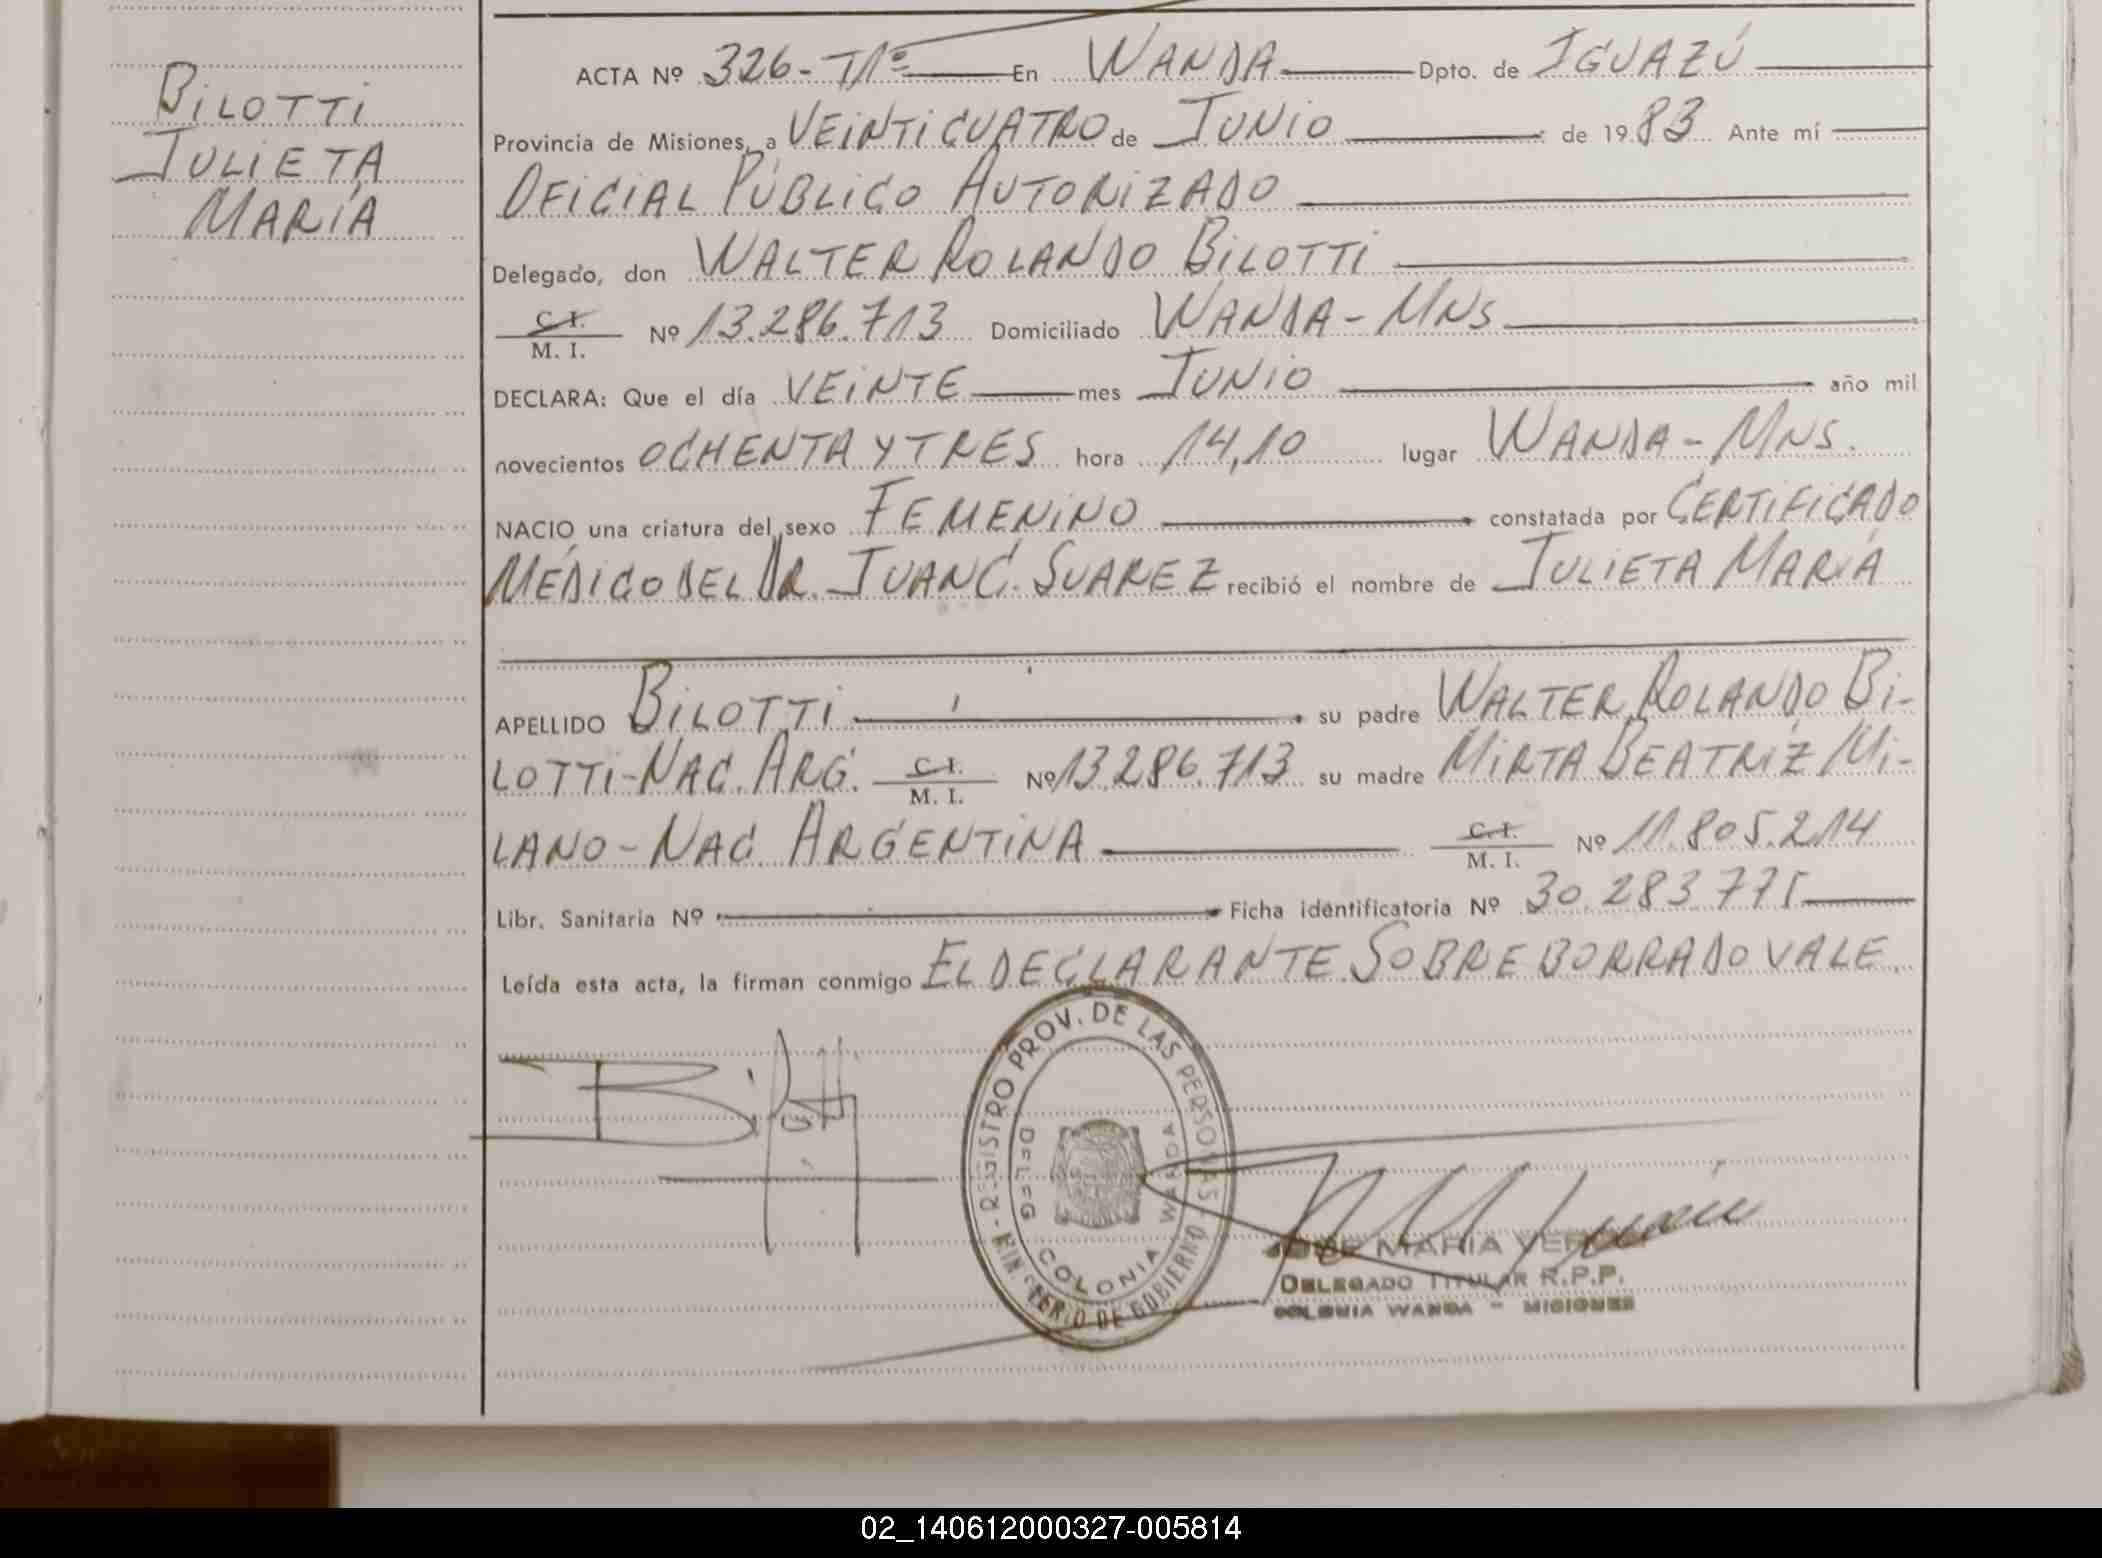 BILOTTI
JULIETA
MARÍA
ACTA Nº 326-Tº1º En WANDA Dpto. de IGUAZÚ
Provincia de Misiones, a VEINTICUATRO de JUNIO de 1983 Ante mí
OFICIAL PÚBLICO AUTORIZADO
Delegado, don WALTER ROLANDO BILOTTI
C. I.
M. I. Nº 13.286.713 Domiciliado WANDA-MNS
DECLARA: Que el día VEINTE mes JUNIO año mil
novecientos OCHENTA Y TRES hora 14,10 lugar WANDA-MNS.
NACIO una criatura del sexo FEMENINO constatada por CERTIFICADO
MÉDICO DEL DR. JUAN C. SUAREZ recibió el nombre de JULIETA MARÍA
APELLIDO BILOTTI su padre WALTER ROLANDO BI-
LOTTI-NAC. ARG. C. I. M. I. Nº 13.286.713 su madre MIRTA BEATRÍZ MI-
LANO-NAC. ARGENTINA C. I. M. I. Nº 11.805.214
Libr. Sanitaria Nº Ficha identificatoria Nº 30.283.775
Leída esta acta, la firman conmigo EL DECLARANTE. SOBRE BORRADO VALE.
REGISTRO PROV. DE LAS PERSONAS - MINISTERIO DE GOBIERNO
DELEG. COLONIA WANDA
JOSE MARIA
DELEGADO TITULAR R.P.P.
COLONIA WANDA - MISIONES
02_140612000327-005814